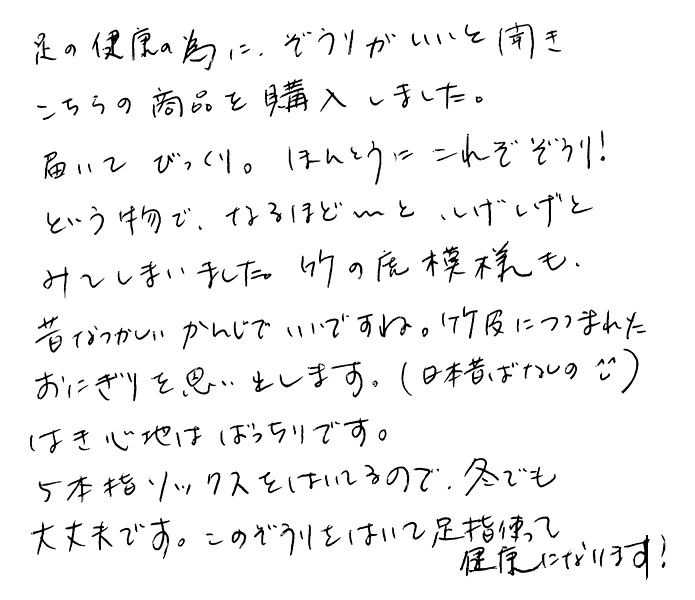 足の健康の為に、ぞうりがいいと聞き
こちらの商品を購入しました。
届いてびっくり。ほんとうにこれぞぞうり!
という物で、なるほど〜と、しげしげと
みてしまいました。竹の虎模様も、
昔なつかしいかんじでいいですね。竹皮につつまれた
おにぎりを思い出します。(日本昔ばなしの^^)
はき心地はばっちりです。
5本指ソックスをはいてるので、冬でも
大丈夫です。このぞうりをはいて足指使って
健康になります!